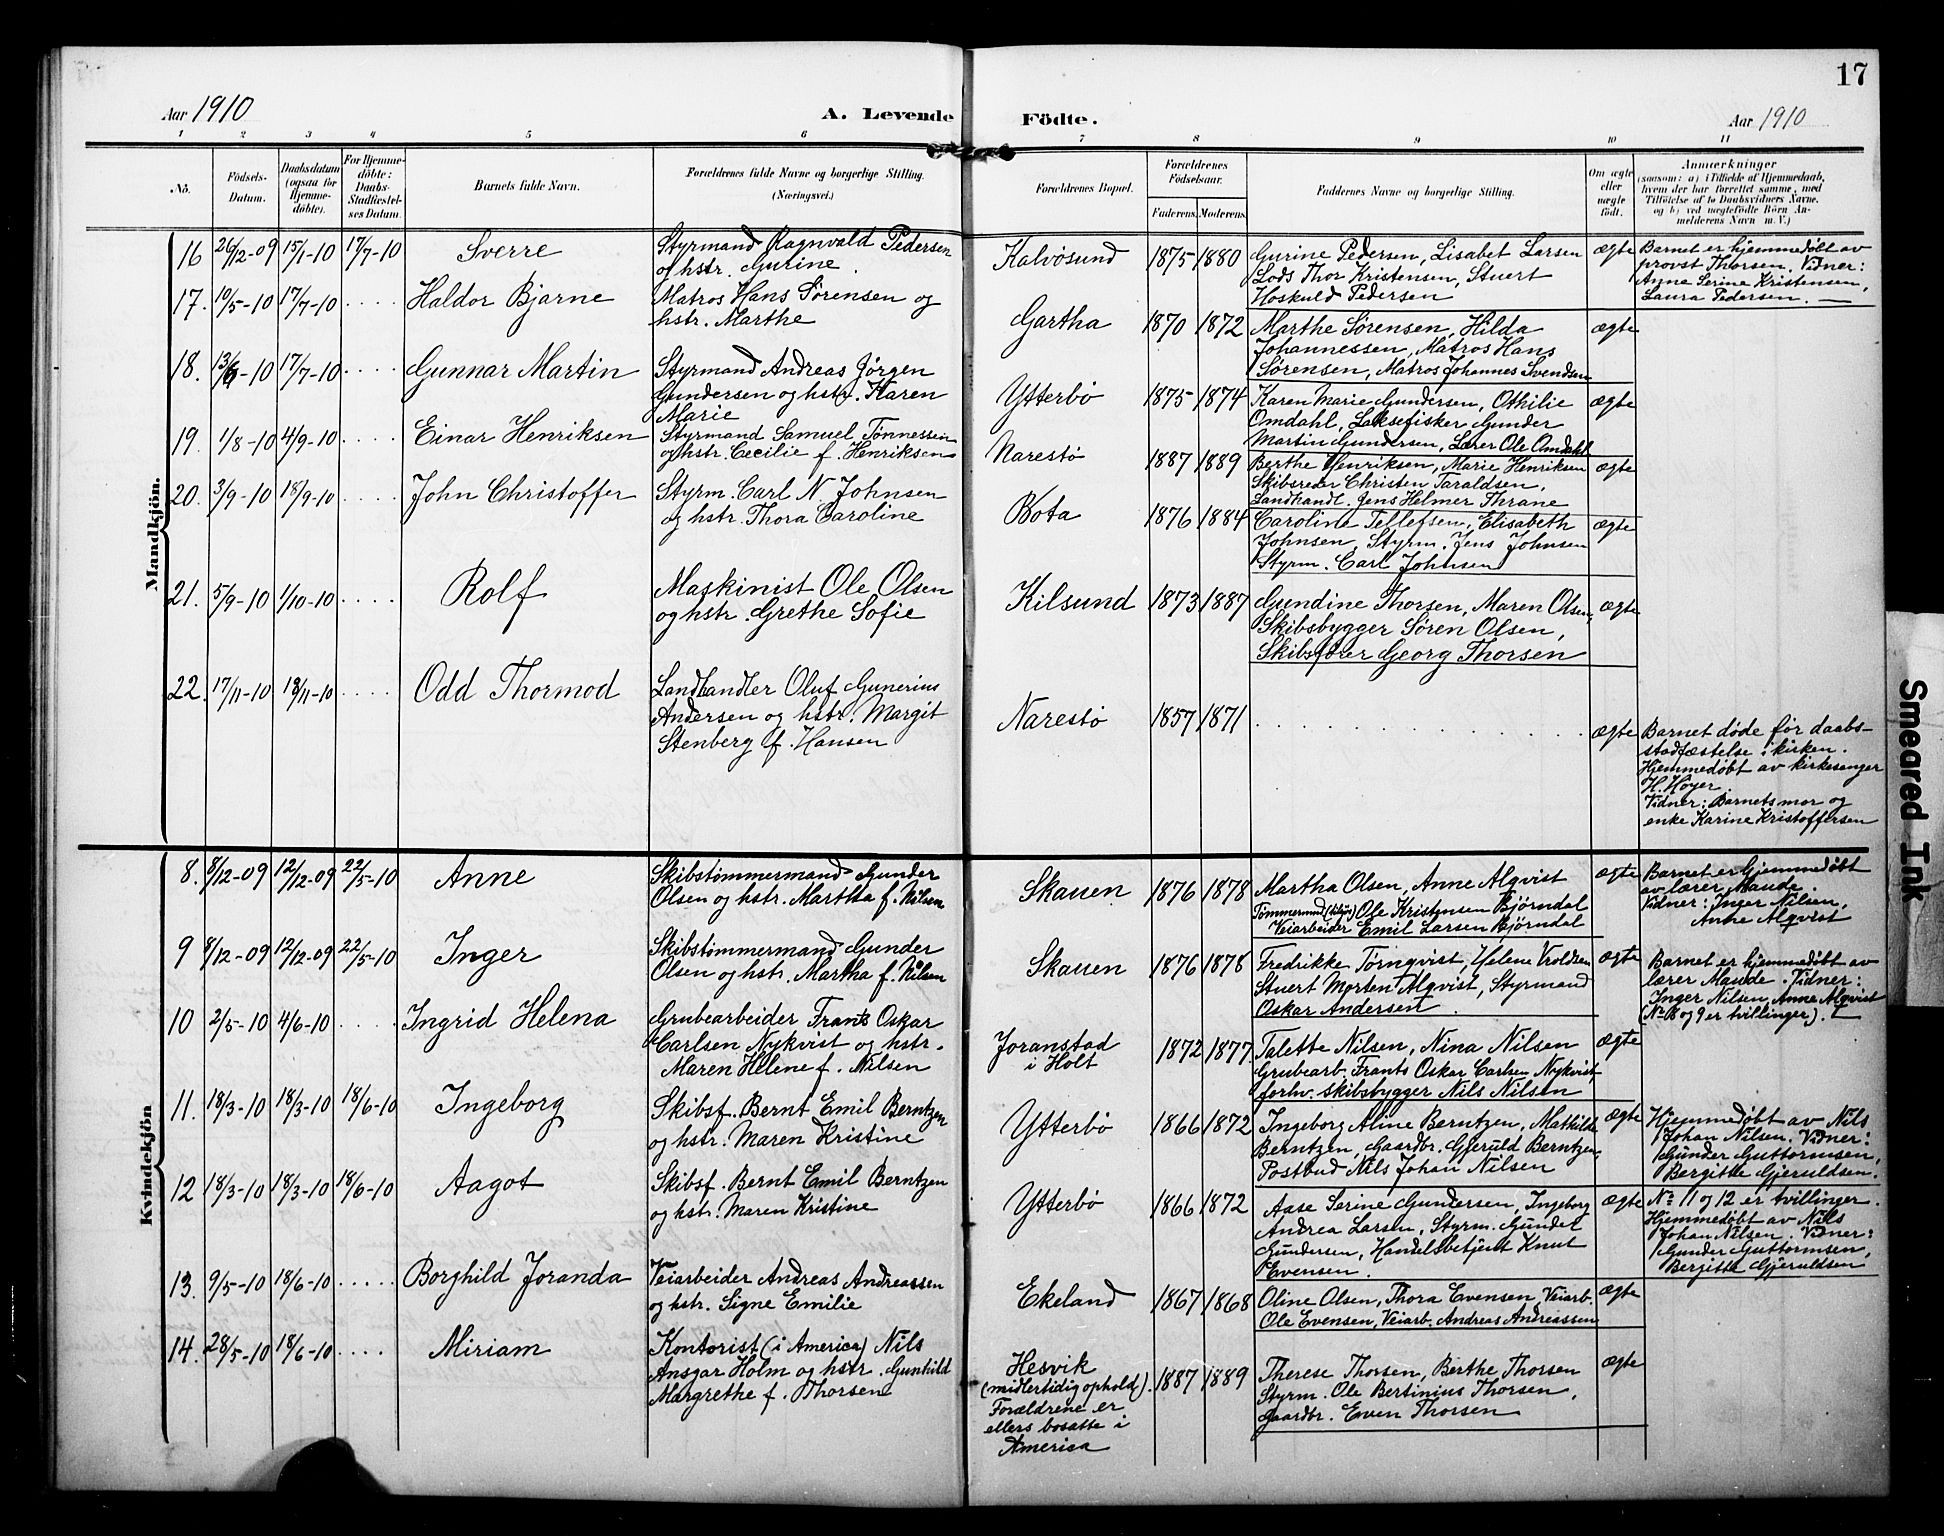 17
Aar 1910
A. Levende Födte.
Aar 1910
1 2 3 4 5 6 7 8 9 10 11
No.
Födsels-
Datum.
Daabsdatum
(ogsaa for
Hjemme-
döbte).
For Hjemme-
döbte:
Daabs-
Stadfæstel-
ses Datum.
Barnets fulde Navn.
Forældrenes fulde Navne og borgerlige Stilling.
(Næringsvei.)
Forældrenes Bopæl.
Forældrenes
Födselsaar.
Faderens. Moderens.
Faddernes Navne og borgerlige Stilling.
Om ægte
eller
uægte
födt.
Anmærkninger
(saasom: a) i Tilfælde af Hjemmedaab,
hvem der har forrettet samme, med
Tilföielse af to Daabsvidners Navne,
og b) ved uægtefödte Börn An-
melderens Navn m. V.)
Mandkjön.
16 26/12-09 15/1-10 17/7-10 Sverre
Styrmand Ragnvald Pedersen
og hstr. Gurine.
Kalvøsund 1875 1880
Gurine Pedersen, Lisabet Larsen
Lods Thor Kristensen, Stuert
Hoskuld Pedersen
ægte
Barnet er hjemmedøbt av
provst Thorsen. Vidner:
Anne Serine Kristensen,
Laura Pedersen. —
17. 19/5-10 17/7-10 . . . . Haldor Bjarne
Matros Hans Sørensen og
hstr. Marthe
Gartha 1870 1872
Marthe Sørensen, Hilda
Johannessen, Matros Hans
Sørensen, Matros Johannes Svendsen
ægte
18. 13/6-10 17/7-10 . . . . Gunnar Martin
Styrmand Andreas Jørgen
Gundersen og hstr. Karen
Marie
Ytterbö 1875 1874
Karen Marie Gundersen, Othilie
Omdahl, Laksefisker Gunder
Martin Gundersen, Lærer Ole Omdahl
ægte
19. 1/8-10 4/9-10 . . . . Einar Henriksen
Styrmand Samuel Tønnessen
og hstr. Cecilie f. Henriksen
Narestø 1887 1889
Berthe Henriksen, Marie Henriksen
Skibsreder Christen Taraldsen,
Landhandl. Jens Helmer Thrane
ægte
20. 3/9-10 18/9-10 . . . . John Christoffer
Styrm. Carl N. Johnsen
og hstr. Thora Caroline
Bota 1876 1884
Caroline Tellefsen, Elisabeth
Johnsen, Styrm. Jens Johnsen
Styrm. Carl Johnsen
ægte
21. 5/9-10 1/10-10 . . . . Rolf
Maskinist Ole Olsen
og hstr. Grethe Sofie
Kilsund 1873 1887
Gundine Thorsen, Maren Olsen,
Skibsbygger Sören Olsen,
Skibsfører Georg Thorsen
ægte
22. 17/11-10 18/11-10 . . . . Odd Thormod
Landhandler Oluf Gunerius
Andersen og hstr. Margit
Stenberg f. Hansen
Narestø 1857 1871 . . . . . . . . .
ægte
Barnet døde før daabs-
stadfæstelse i kirken.
Hjemmedøbt av kirkesanger
H. Høyer
Vidner: Barnets mor og
enke Karine Kristoffersen
Kvindekjön
8. 8/12-09 12/12-09 22/5-10 Anne
Skibstømmermand Gunder
Olsen og hstr. Martha f. Nilsen
Skauen 1876 1878
Martha Olsen, Anne Alqvist
Tømmermand Ole Kristensen Bjørndal
Veiarbeider Emil Larsen Bjørndal
ægte
Barnet er hjemmedøbt
av lærer Maude.
Vidner: Inger Nilsen,
Anne Alqvist
9 8/12-09 12/12-09 22/5-10 Inger
Skibstømmermand Gunder
Olsen og hstr. Martha f. Nilsen
Skauen 1876 1878
Fredrikke Törnqvist, Helene Vroldsen
Stuert Morten Alqvist, Styrmand
Oskar Andersen.
ægte
Barnet er hjemmedøbt av
lærer Maude. Vidner:
Inger Nilsen, Anne Alqvist
(No 8 og 9 er tvillinger).
10 2/5-10 4/6-10 . . . . Ingrid Helena
Grubearbeider Frants Oskar
Carlsen Nykvist og hstr.
Maren Helene f. Nilsen
Joranstad
i Holt
1872 1877.
Talette Nilsen, Nina Nilsen
Grubearb. Frants Oskar Carlsen Nykvist,
forhv. skibsbygger Nils Nilsen
ægte
11. 18/3-10 18/3-10 18/6-10 Ingeborg
Skibsf. Bernt Emil Berntzen
og hstr. Maren Kristine
Ytterbö 1866 1872
Ingeborg Aline Berntzen, Mathilde
Berntzen, Gaardbr. Gjeruld Berntzen,
Postbud Nils Johan Nilsen
ægte
Hjemmedøbt av Nils
Johan Nilsen. Vidner:
Gunder Guttormsen,
Bergitte Gjeruldsen.
12 18/3-10 18/3-10 18/6-10 Aagot
Skibsf. Bernt Emil Berntzen
og hstr. Maren Kristine
Ytterbö 1866 1872
Aase Serine Gundersen, Ingeborg
Andrea Larsen, Styrm. Gunder
Gundersen, Handelsbetjent Knut
Evensen.
ægte
No 11 og 12 er tvillinger.
Hjemmedøbt av Nils
Johan Nilsen. Vidner:
Gunder Guttormsen,
Bergitte Gjeruldsen
13. 9/5-10 18/6-10 . . . . . Borghild Joranda
Veiarbeider Andreas Andreassen
og hstr. Signe Emilie
Ekeland 1867 1868
Oline Olsen, Thora Evensen, Veiarb.
Ole Evensen, Veiarb. Andreas Andreassen
ægte
14. 28/5-10 18/6-10 . . . . Miriam
Kontorist (i America) Nils
Ansgar Holm og hstr. Gunhild
Margrethe f. Thorsen
Hesvik
(midlertidig ophold).
Forældrene er
ellers bosatte i
America
1887 1889
Therese Thorsen, Berthe Thorsen
Styrm. Ole Bertinius Thorsen,
Gaardbr. Even Thorsen
ægte
Smeared Ink